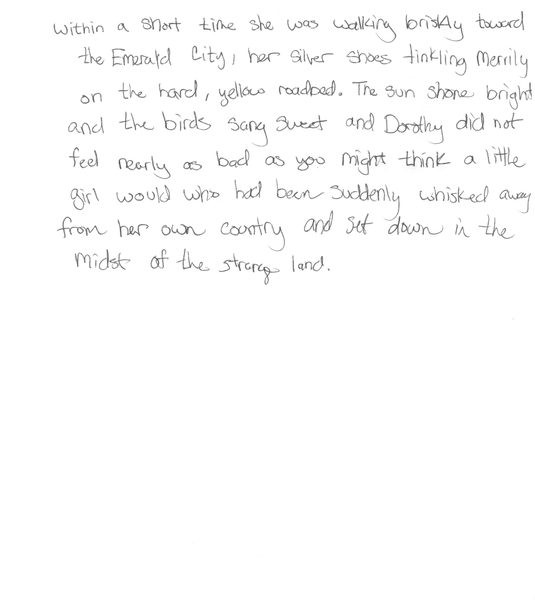 within a short time she was walking briskly toward
the Emerald City, her silver shoes tinkling merrily
on the hard, yellow roadbed. The sun shone bright
and the birds sang sweet and Dorothy did not
feel nearly as bad as you might think a little
girl would who had been suddenly whisked away
from her own country and set down in the
midst of the strange land.